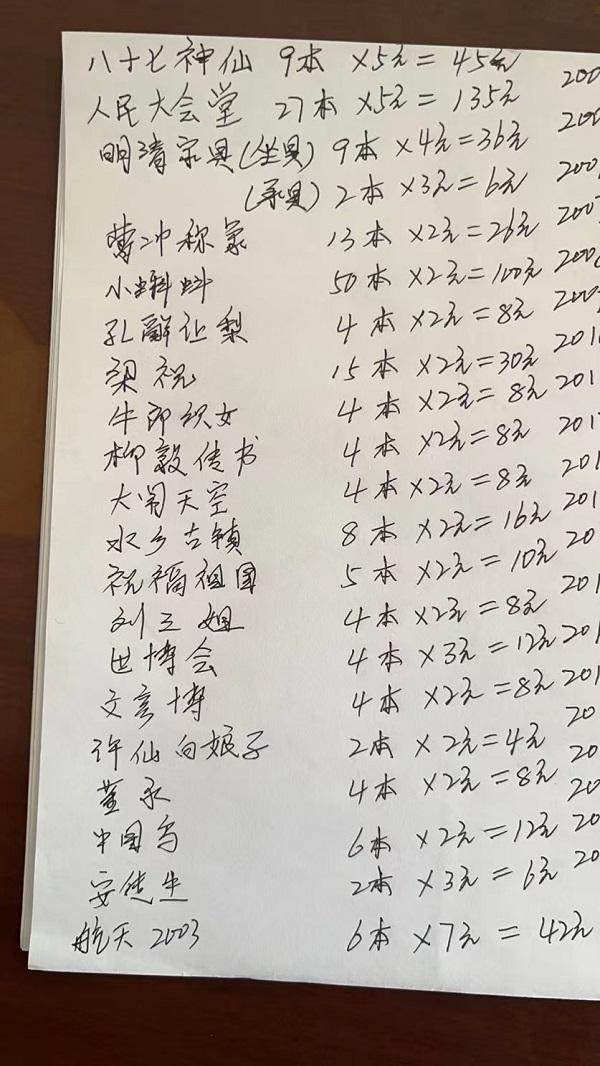 八十七神仙 9本 ×5元=45元 200
人民大会堂 27本 ×5元=135元 200
明清家具(坐具) 9本 ×4元=36元 200
(承具) 2本 ×3元=6元 200
曹冲称象 13本 ×2元=26元 200
小蝌蚪 50本 ×2元=100元 200
孔融让梨 4本 ×2元=8元 200
梁祝 15本 ×2元=30元 201
牛郎织女 4本 ×2元=8元 201
柳毅传书 4本 ×2元=8元 201
大闹天空 4本 ×2元=8元 201
水乡古镇 8本 ×2元=16元 201
祝福祖国 5本 ×2元=10元 20
刘三姐 4本 ×2元=8元 201
世博会 4本 ×3元=12元 201
文彦博 4本 ×2元=8元 201
许仙白娘子 2本 ×2元=4元 20
董永 4本 ×2元=8元 20
中国鸟 6本 ×2元=12元 20
安徒生 2本 ×3元=6元 20
航天2003 6本 ×7元=42元